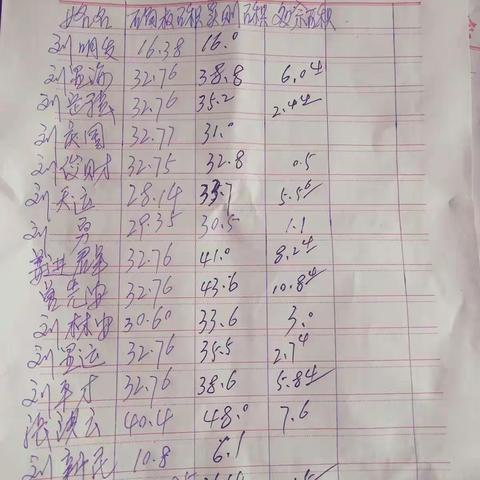 姓名 面积 实则面积 多余面积
刘明发 16.38 16.0
刘 32.76 38.8 6.04
刘 32.76 35.2 2.44
刘庆国 32.77 31.0
刘俊财 32.75 32.8 0.5
刘天运 28.14 33.7 5.56
刘勇 29.35 30.5 1.1
姜进 32.76 41.0 8.24
曾先 32.76 43.6 10.84
刘林 30.60 33.6 3.0
刘运 32.76 35.5 2.74
刘才 32.76 38.6 5.84
张云 40.4 48.0 7.6
刘新民 10.8 6.1